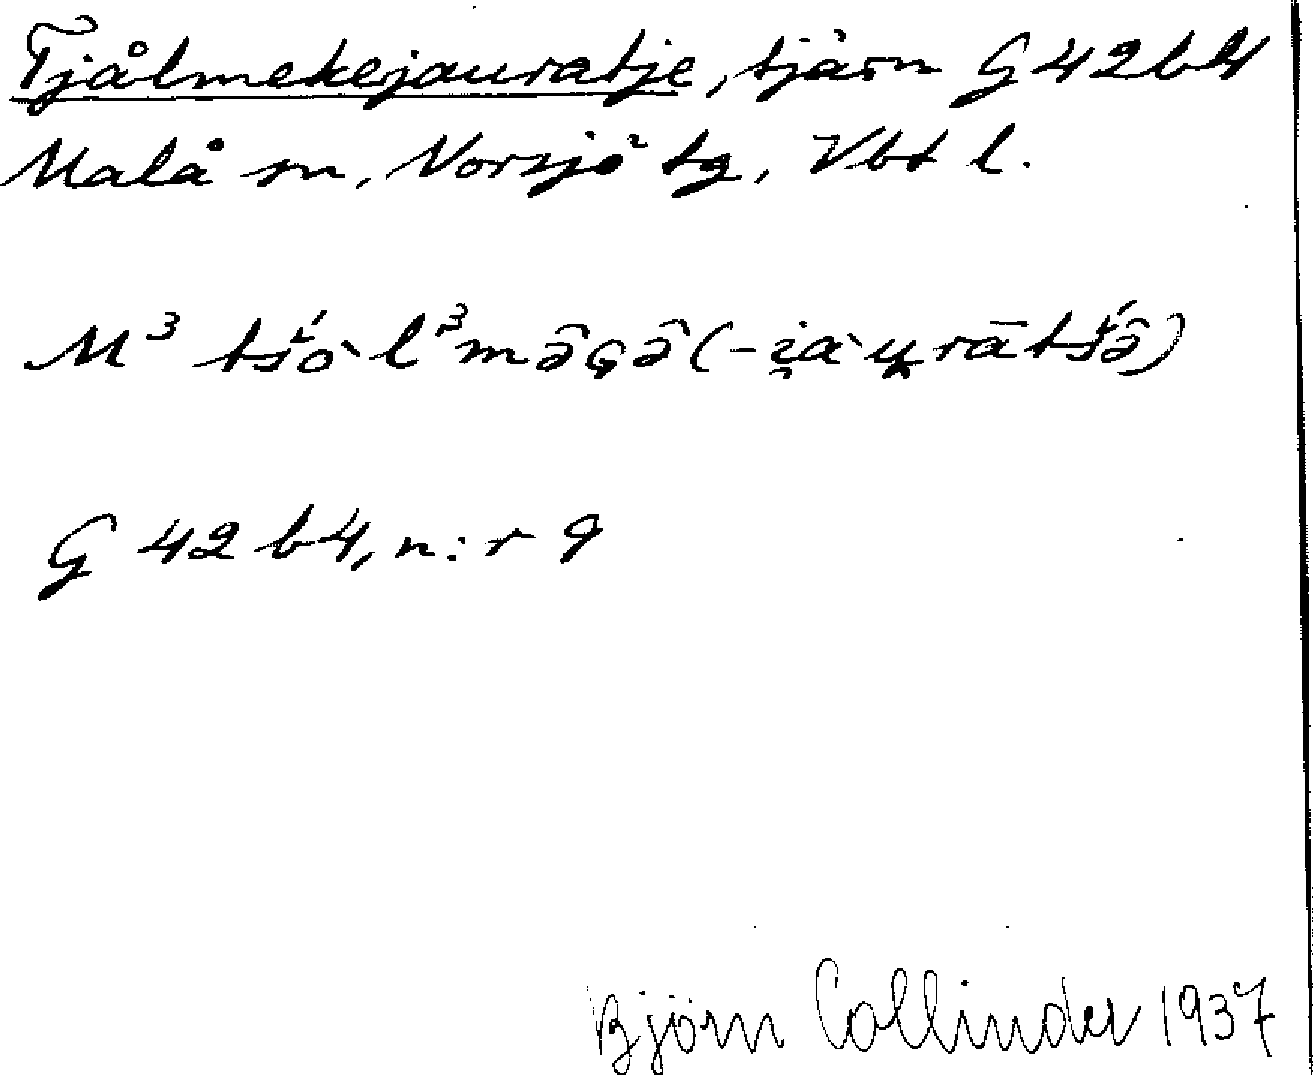 Tjålmekejauratje, tjärn G42b4
Malå sn, Norsjö tg, Vbt l.
M³ tśó̀l³mə̂ɢə̂(-i̯àu̯rātśə̂)
G 42 b4, n:r 9
Björn Collinder 1937